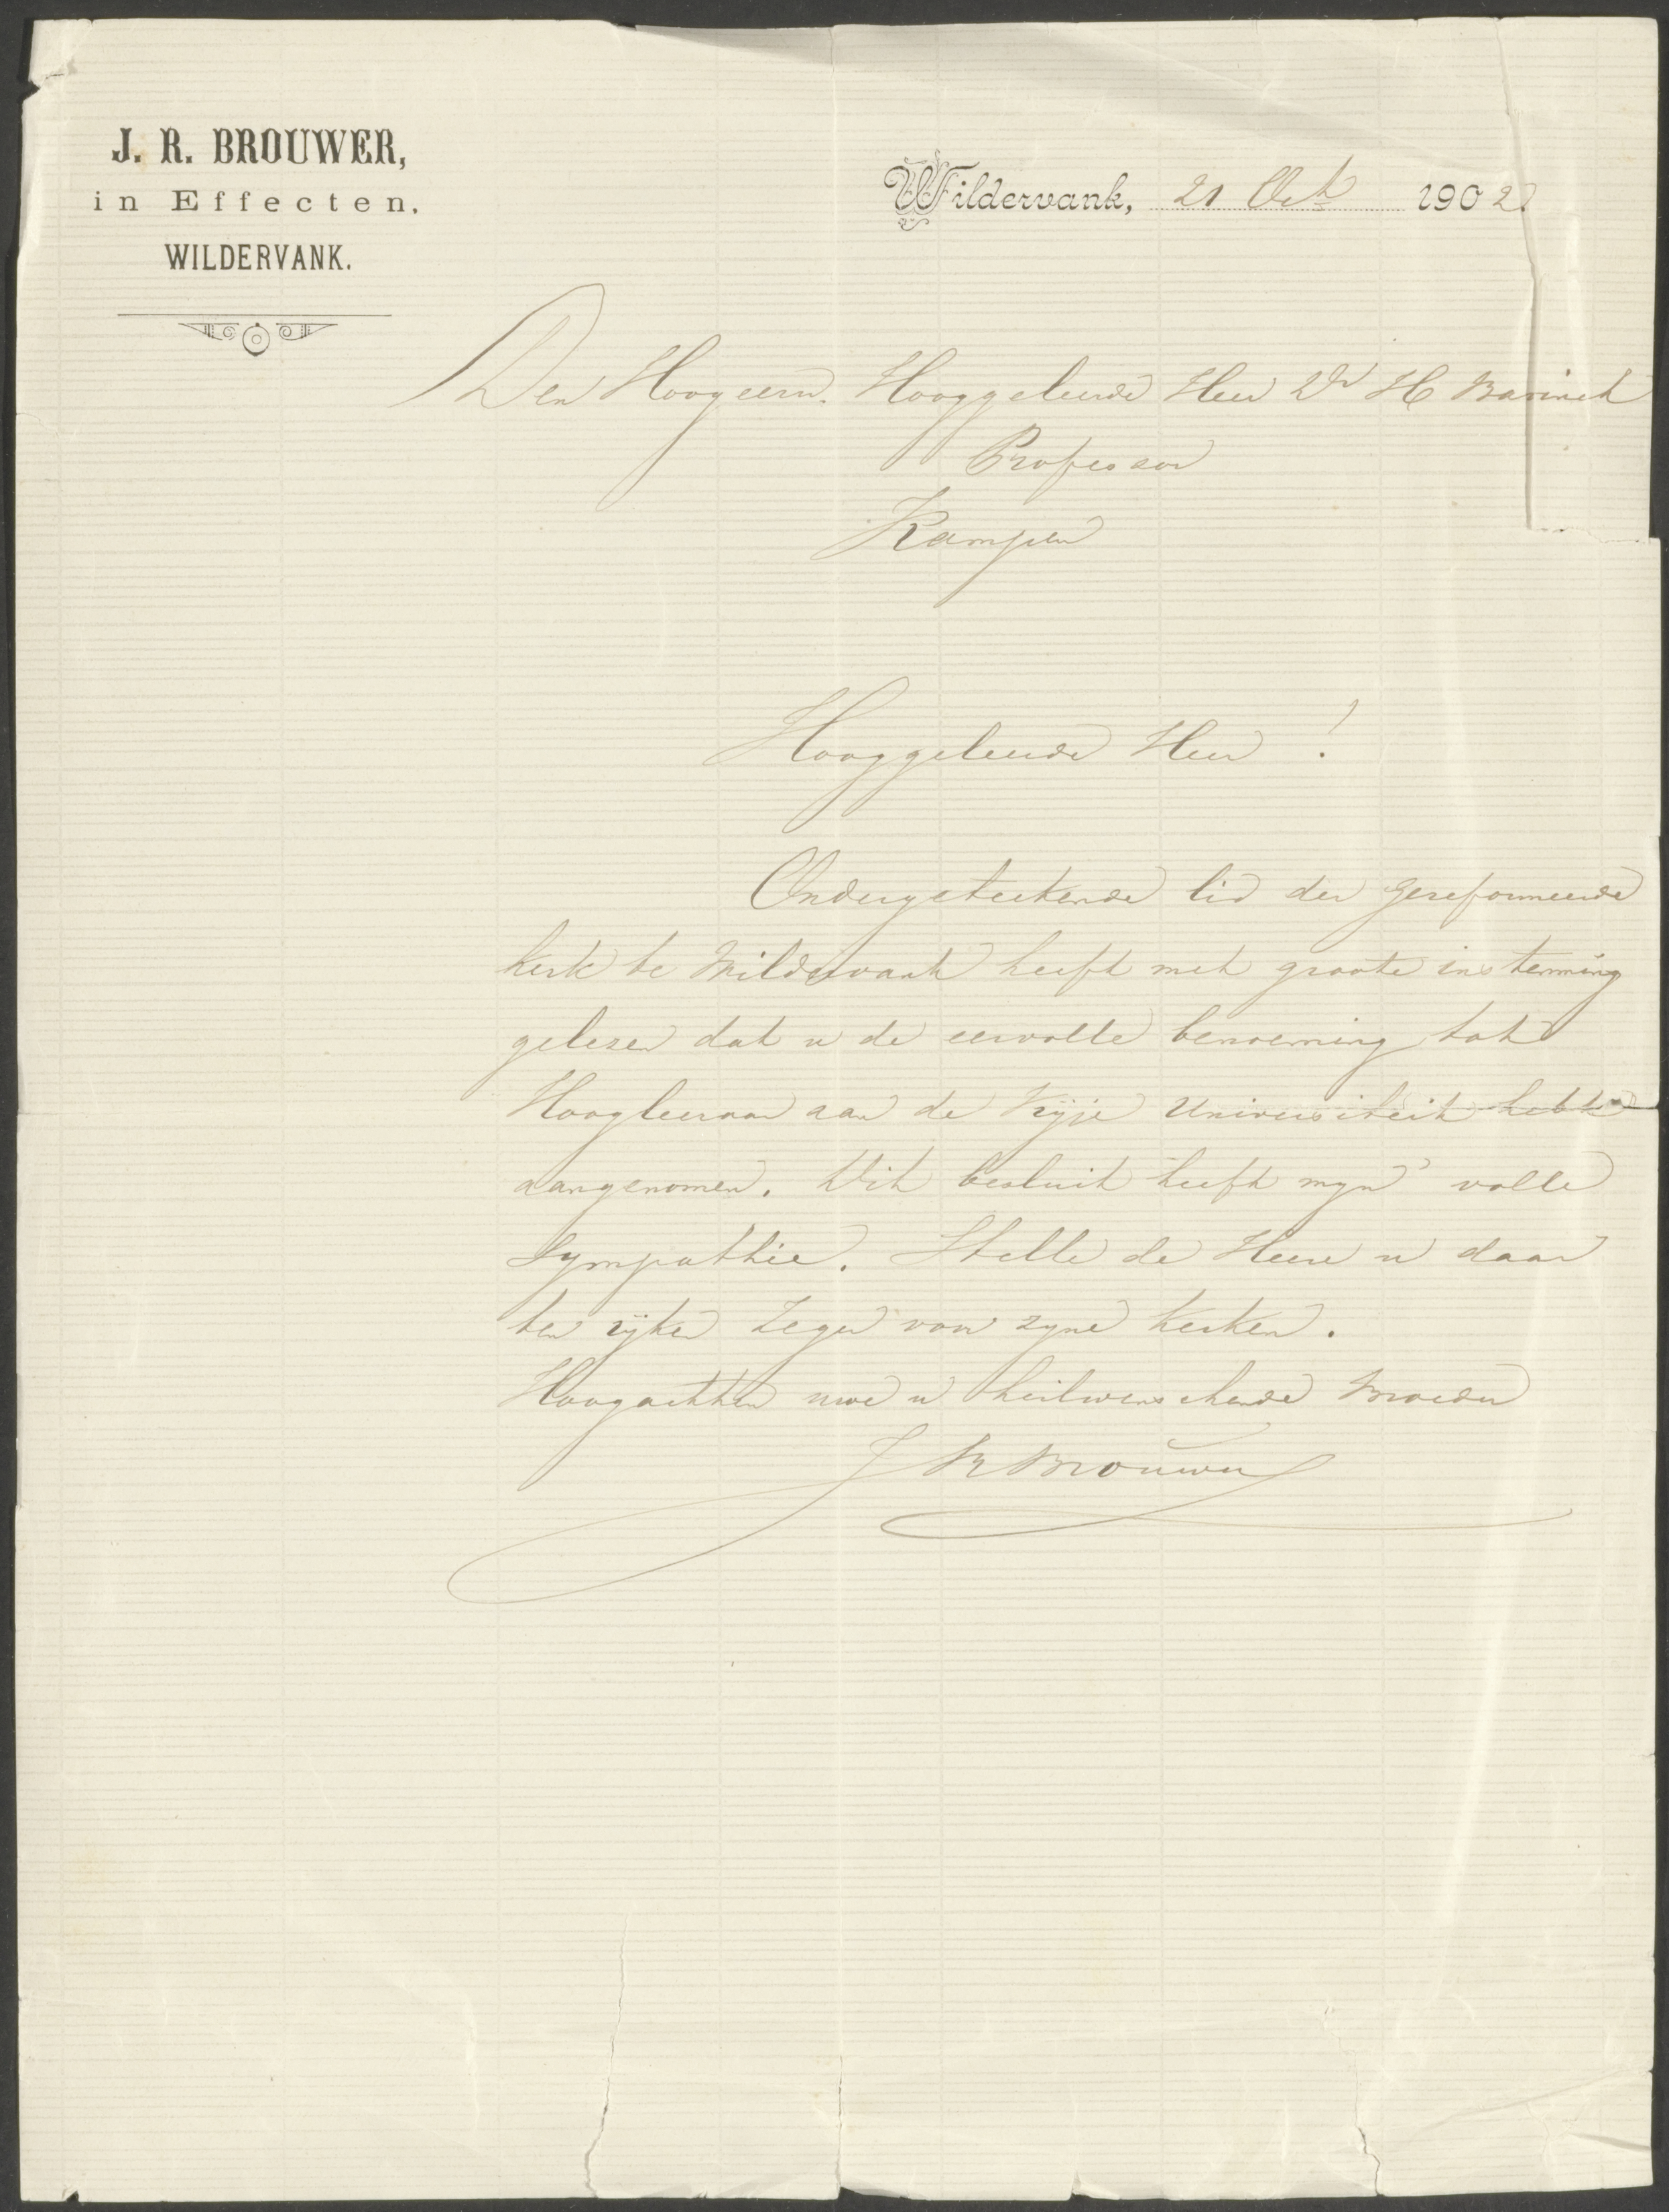 J. R. BROUWER,
in Effecten.
WILDERVANK.
Wildervank, 21 Oct 1902
Den Hoogeerw. Hooggeleerde Heer Dr H Bavinck
Professor
Kampen
Hooggeleerde Heer !
Ondergeteekende lid der Gereformeerde
kerk te Wildervank heeft met groote instemming
gelezen dat u de eervolle benoeming tot
Hoogleeraar aan de Vrije Universiteit hebt
aangenomen. Dit besluit heeft mijn volle
Sympathie. Stelle de Heere u daar
ten rijken Zegen voor zyne kerken.
Hoogachten uwe u heilwenschende Broeder
J R Brouwer